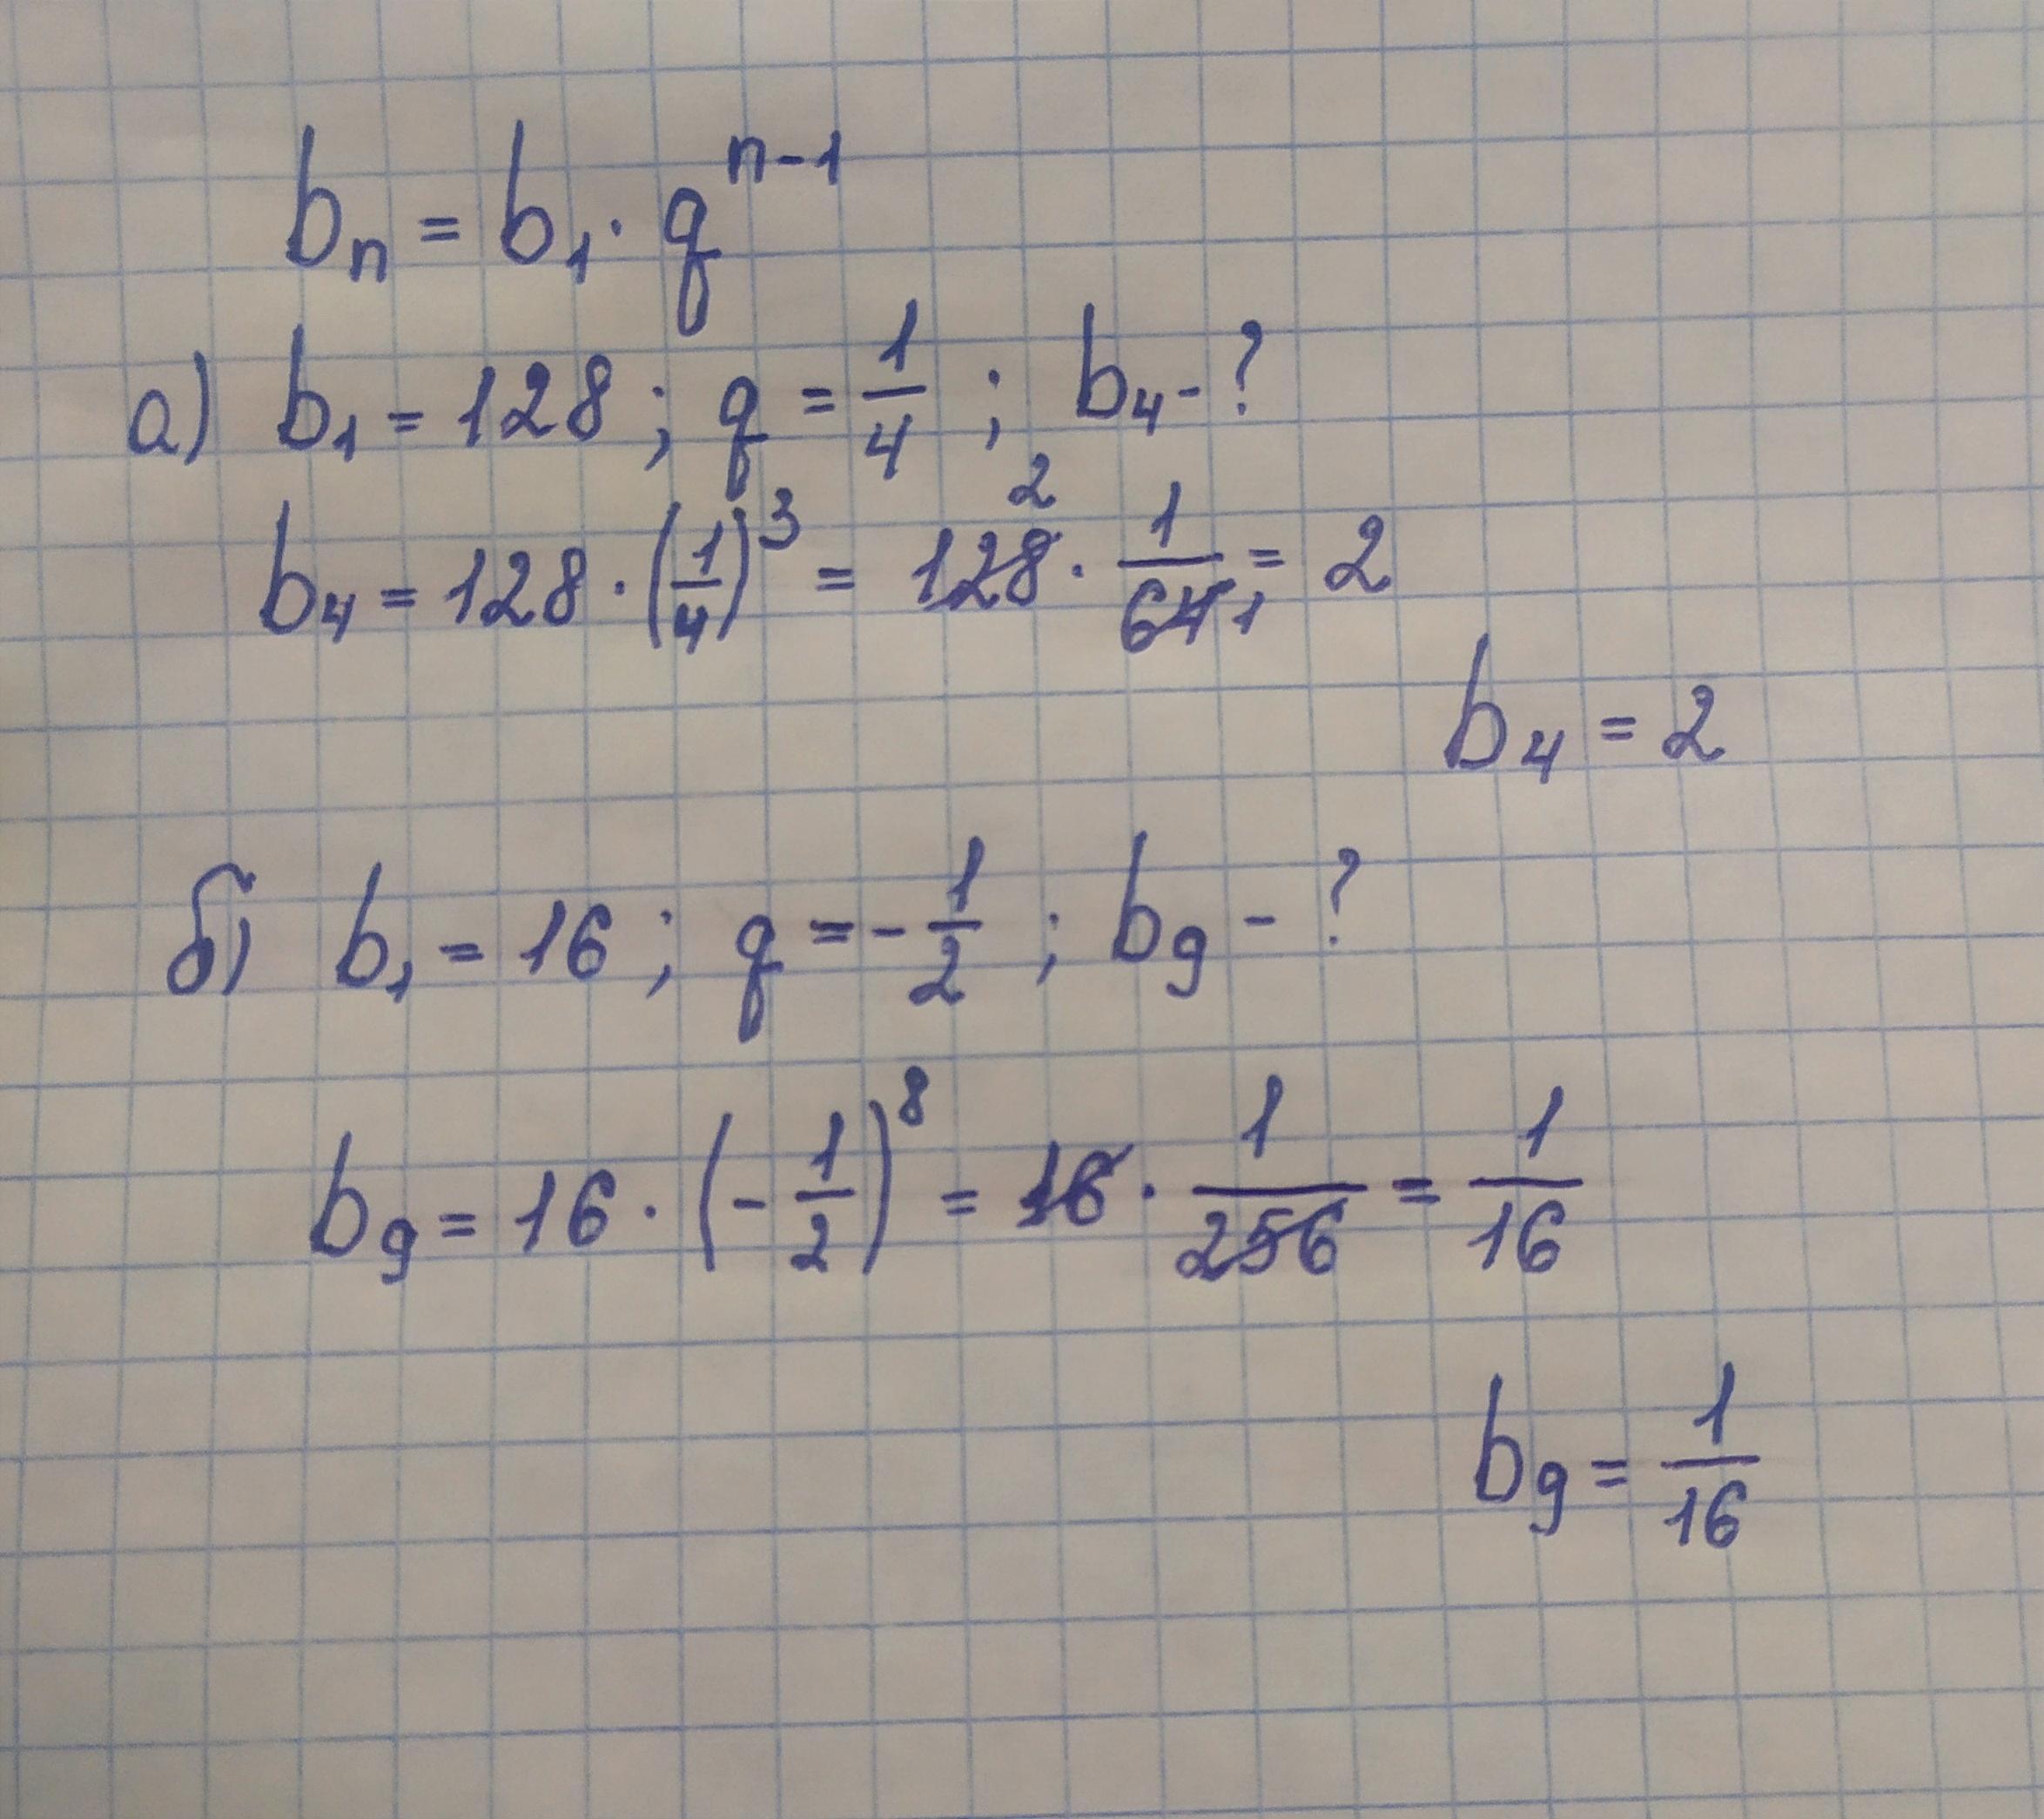 bₙ = b₁ · qⁿ⁻¹
а) b₁ = 128 ; q = 1/4 ; b₄ - ?
b₄ = 128 · (1/4)³ = 128² · 1/64₁ = 2
b₄ = 2
б) b₁ = 16 ; q = -1/2 ; b₉ - ?
b₉ = 16 · (-1/2)⁸ = 16 · 1/256 = 1/16
b₉ = 1/16